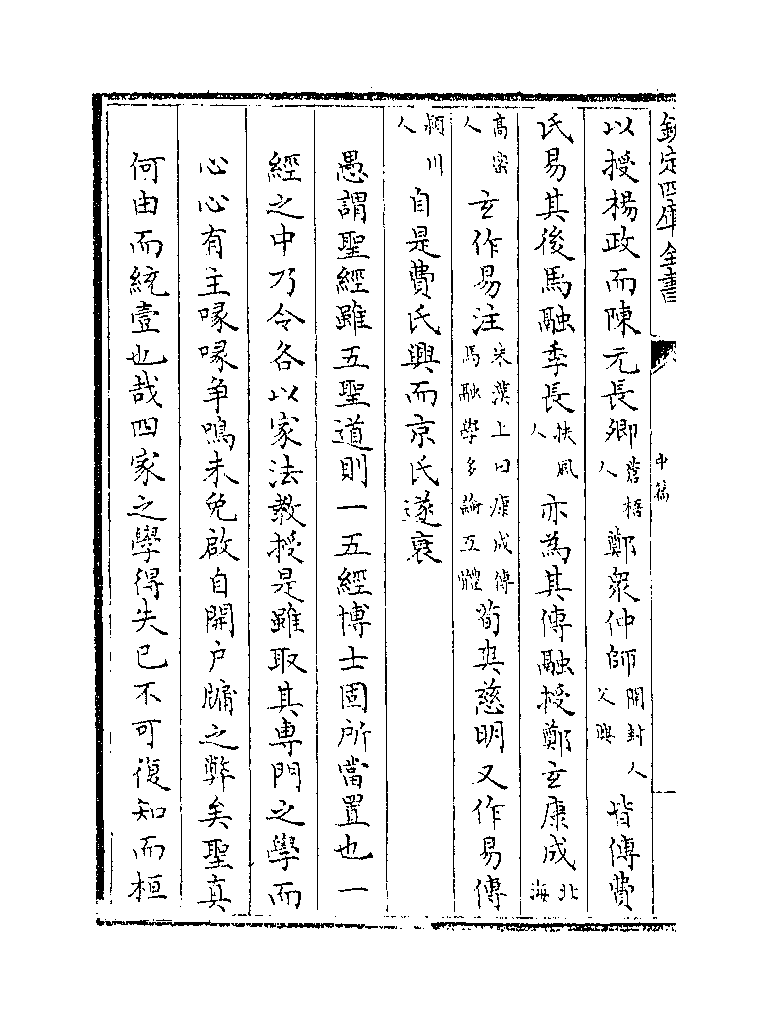 欽定四庫全書
中篇
以授楊政而陳元長卿蒼梧人鄭衆仲師開封人父興皆傳費
氏易其後馬融季長扶風人亦為其傳融授鄭玄康成北海
高密人玄作易注朱漢上曰康成傳馬融學多論互體荀爽慈明又作易傳
潁川人自是費氏興而京氏遂衰
愚謂聖經雖五聖道則一五經博士固所當置也一
經之中乃令各以家法教授是雖取其專門之學而
心心有主喙喙争鳴未免啟自開户牖之弊矣聖真
何由而統壹也哉四家之學得失已不可復知而桓